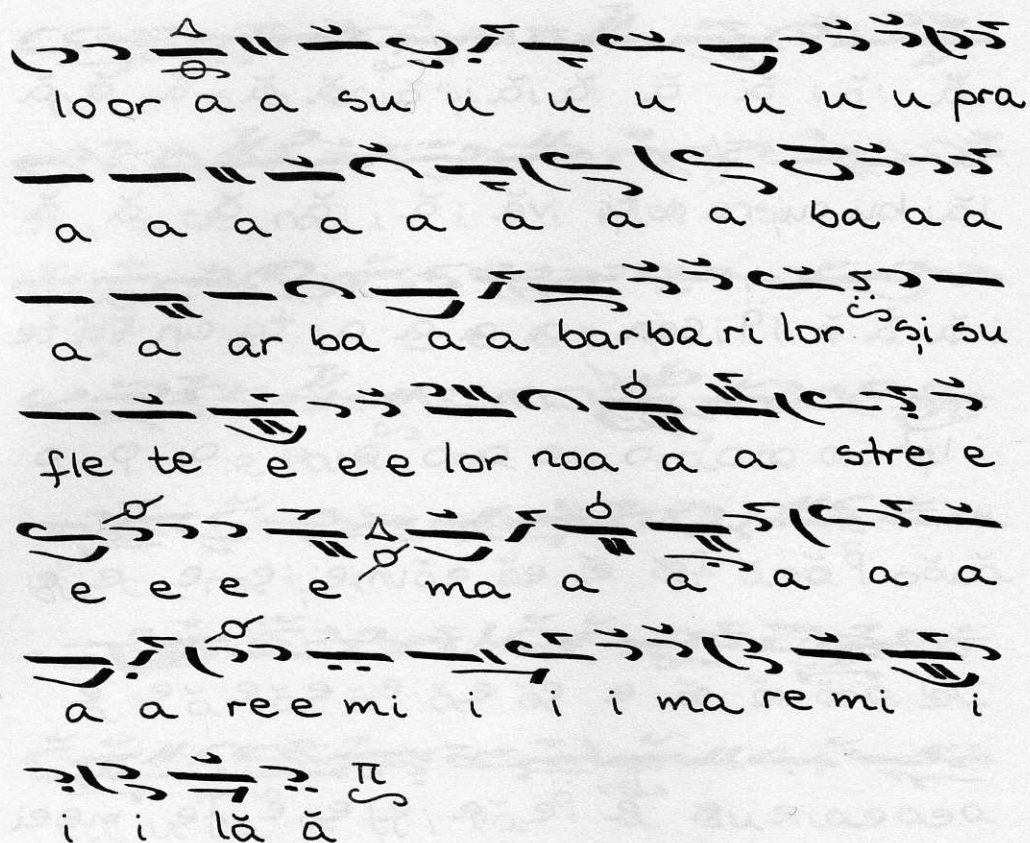 loor a a su u u u u u u pra
a a a a a a a a ba a a
a a ar ba a a barba ri lor și su
fle te e e e lor noa a a stre e
e e e e ma a a a a a
a a ree mi i i i ma re mi i
i i lă ă